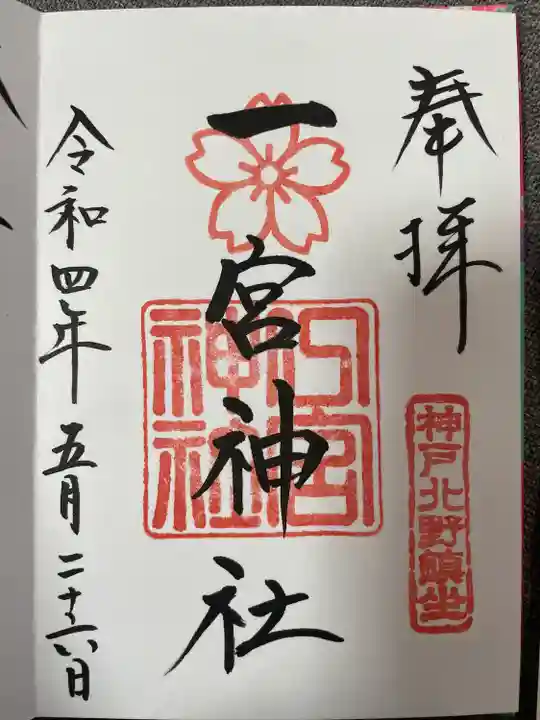 奉拝
神戸北野鎮坐
一宮神社
一宮神社
令和四年五月二十六日